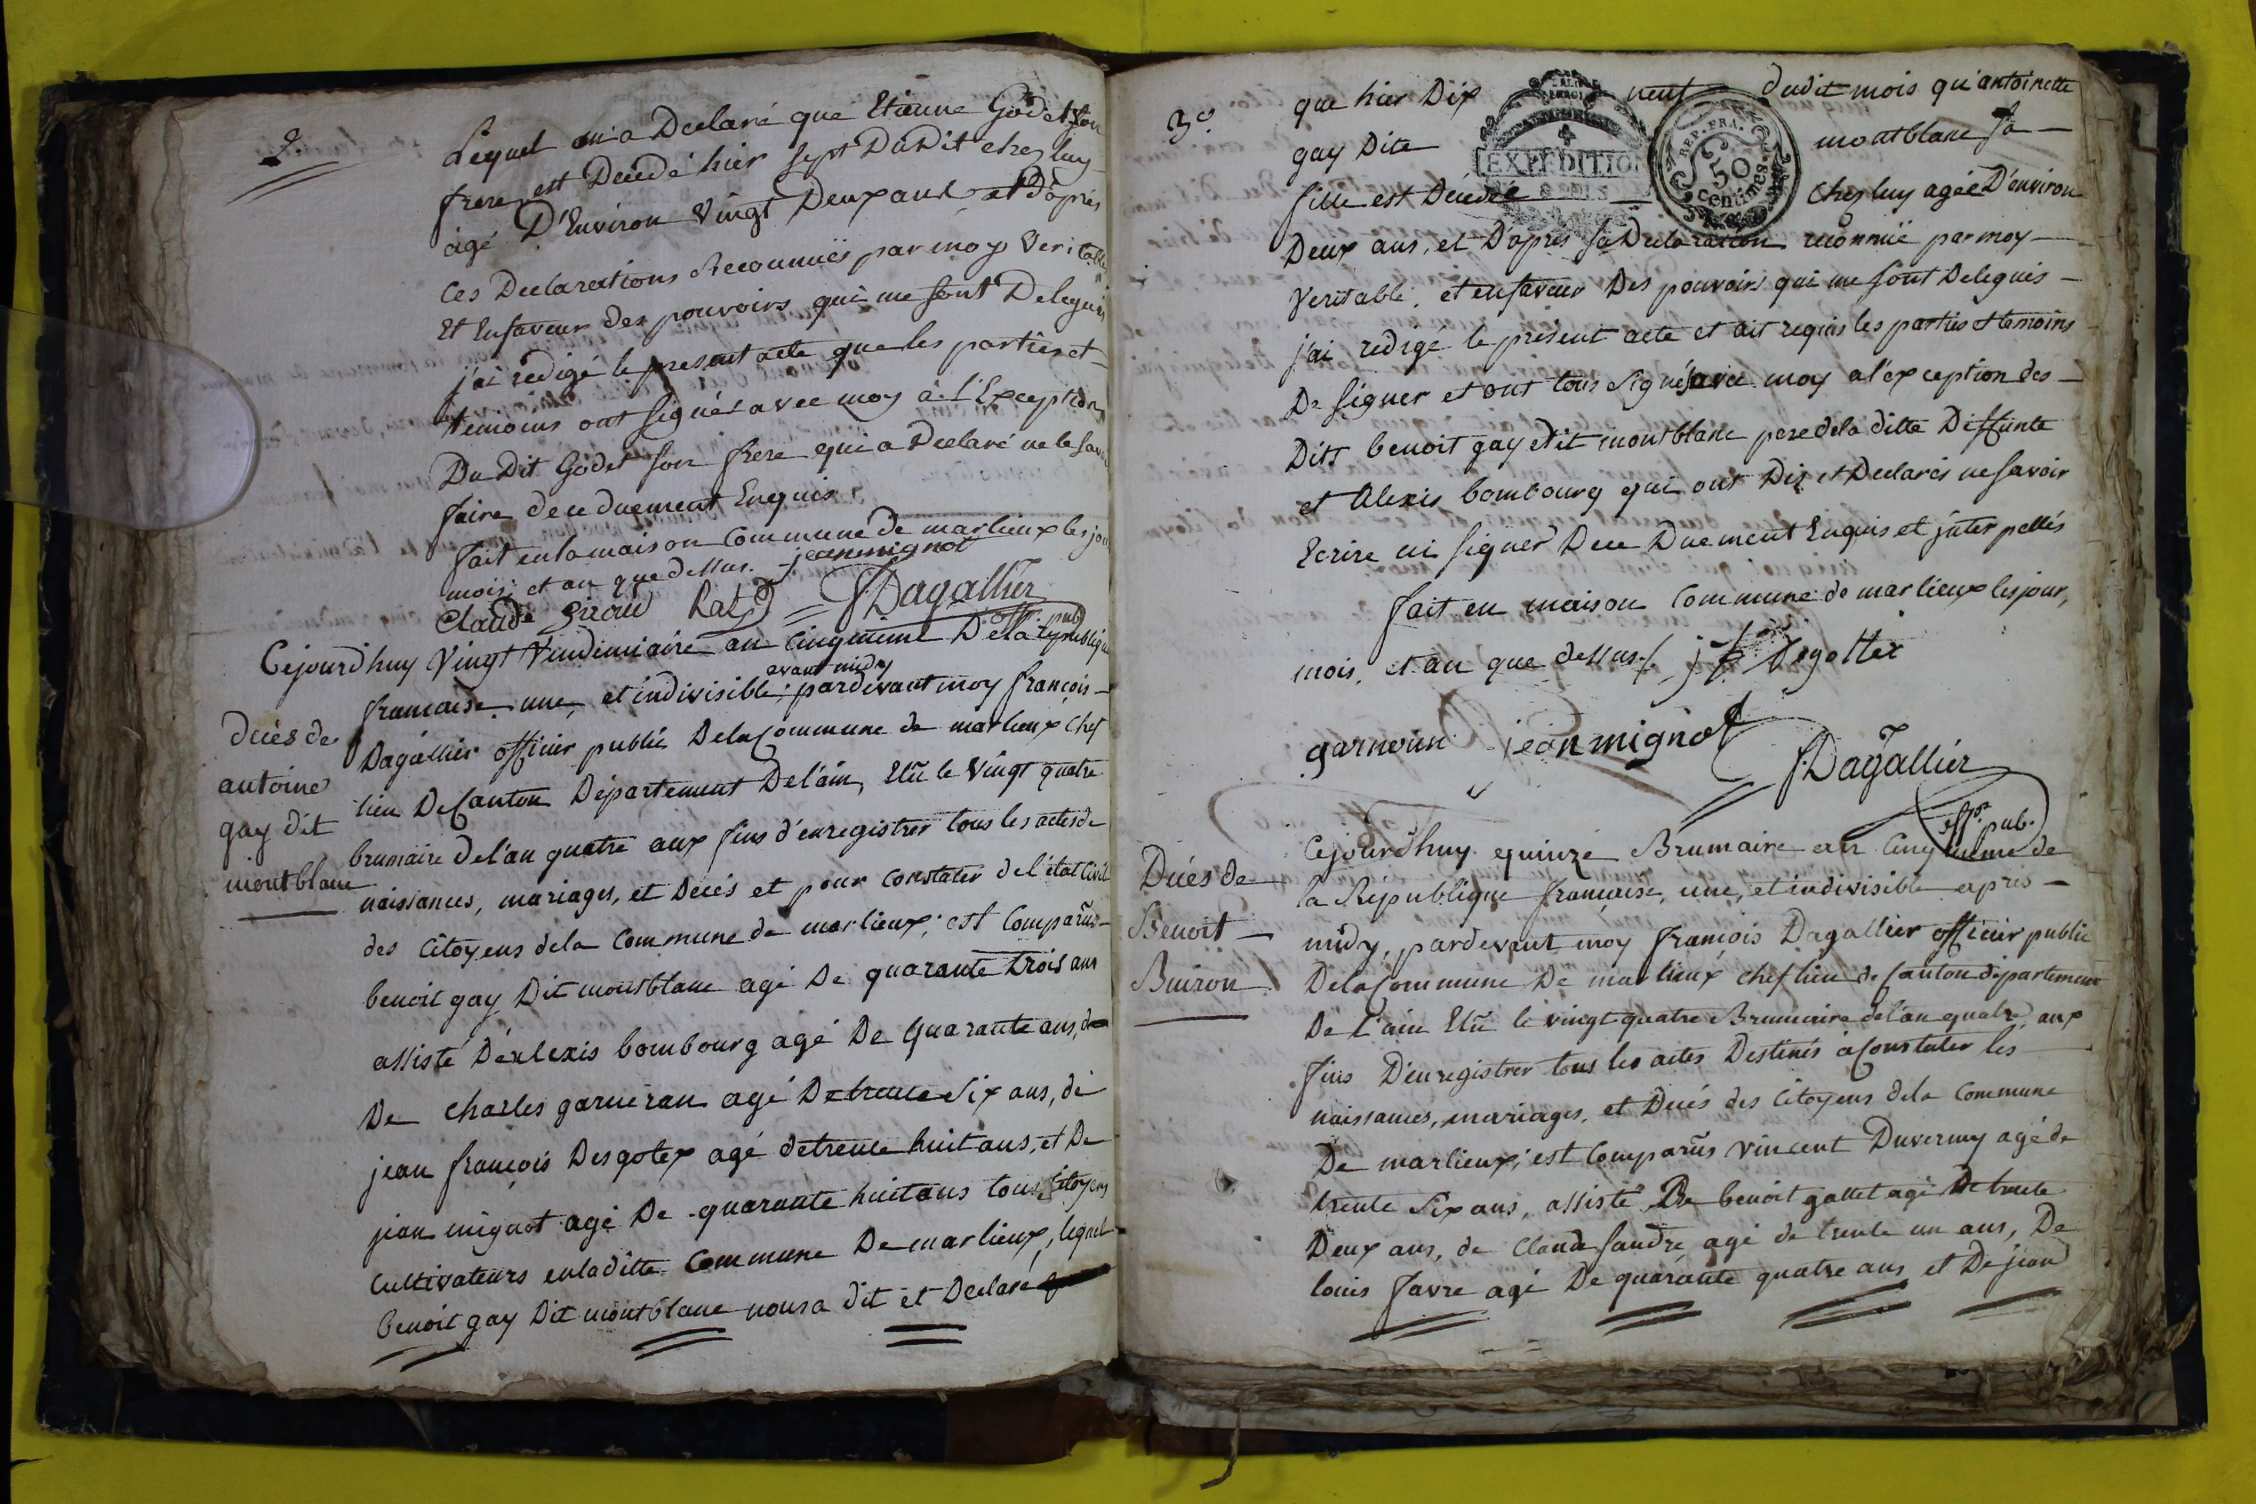 2
Lequel m'a Declaré que Etienne Godet son
frere est Decedé hier sept DuDit chez luy
agé D'Environ Vingt Deux ans et D'après
ces Declarations Reconnuës par moy Veritable
Et Enfaveur des pouvoirs qui me sont Delegués
j'ai rédigé le present acte que les parties et
temoins ont signés avec moy à l'Exception
Du Dit Godet son frere qui a Declaré ne le savoir
faire de ce duement Enquis
fait en la maison Commune De marlieux les jour
mois et an que dessus. jean mignot
Claude girau Rat F Dagallier
off. pub
Cejourd'huy Vingt Vindemiaire an cinquieme De la republique
avant midy
francaise une, et indivisible; pardevant moy françois
Dagallier officier public De la Commune de marlieux chef
lieu De Canton Departement De l'ain, Elû le Vingt quatre
brumaire de l'an quatre aux fins d'enregistrer tous les actes de
naissances, mariages, et Decés et pour constater de l'état Civil
des Citoyens de la Commune de marlieux; est Comparûs
benoit gay Dit montblanc agé De quarante trois ans
assisté De alexis bombourg agé De quarante ans, de
De Charles garneran agé De trente Six ans, de
jean françois Desgotex agé de trente huit ans, et De
jean mignot agé De quarante huit ans tous Citoyens
Cultivateurs en la ditte Commune De marlieux, lequel
benoit gay Dit montblanc nous a dit et Declaré
Décés de
antoine
gay dit
montblanc
3e.
que hier Dix neuf dudit mois qu'antoinette
gay Dite montblanc sa
fille est Décédée chez luy agée D'environ
4
EXPEDITION
REP. FRA.
50
centimes
Deux ans, et D'après sa Declaration reconnuë par moy
Veritable. et en faveur Des pouvoirs qui me sont Delegués
j'ai redigé le présent acte et ait requis les parties et temoins
De signer et ont tous signés avec moy a l'exception des
Dits benoit gay Dit montblanc pere de la ditte Deffunte
et Alexis bombourg qui ont Dis et Declarés ne savoir
Ecrire ni signer De ce Duement Enquis et jnterpellés
fait en maison Commune de marlieux les jour,
mois, et an que dessus./. j f Degottex
garneran jean mignot
F Dagallier
off. pub.
Cejourd'huy quinze Brumaire an Cinquieme de
la République française, une, et indivisible après
midy, pardevant moy françois Dagallier officier public
De la Commune De marlieux chef lieu de Canton département
De l'ain Elû le vingt quatre Brumaire de l'an quatre, aux
fins D'enregistrer tous les actes Destinés a Constater les
naissances, mariages, et Decés des Citoyens de la Commune
De marlieux; est Comparûs Vincent Duvernay agé de
trente Six ans, assisté De benoit gallet agé De trente
Deux ans, de Claude fandre agé de trente un ans, De
louis favre agé De quarante quatre ans et De jean
Décés de
Benoit
Buiron